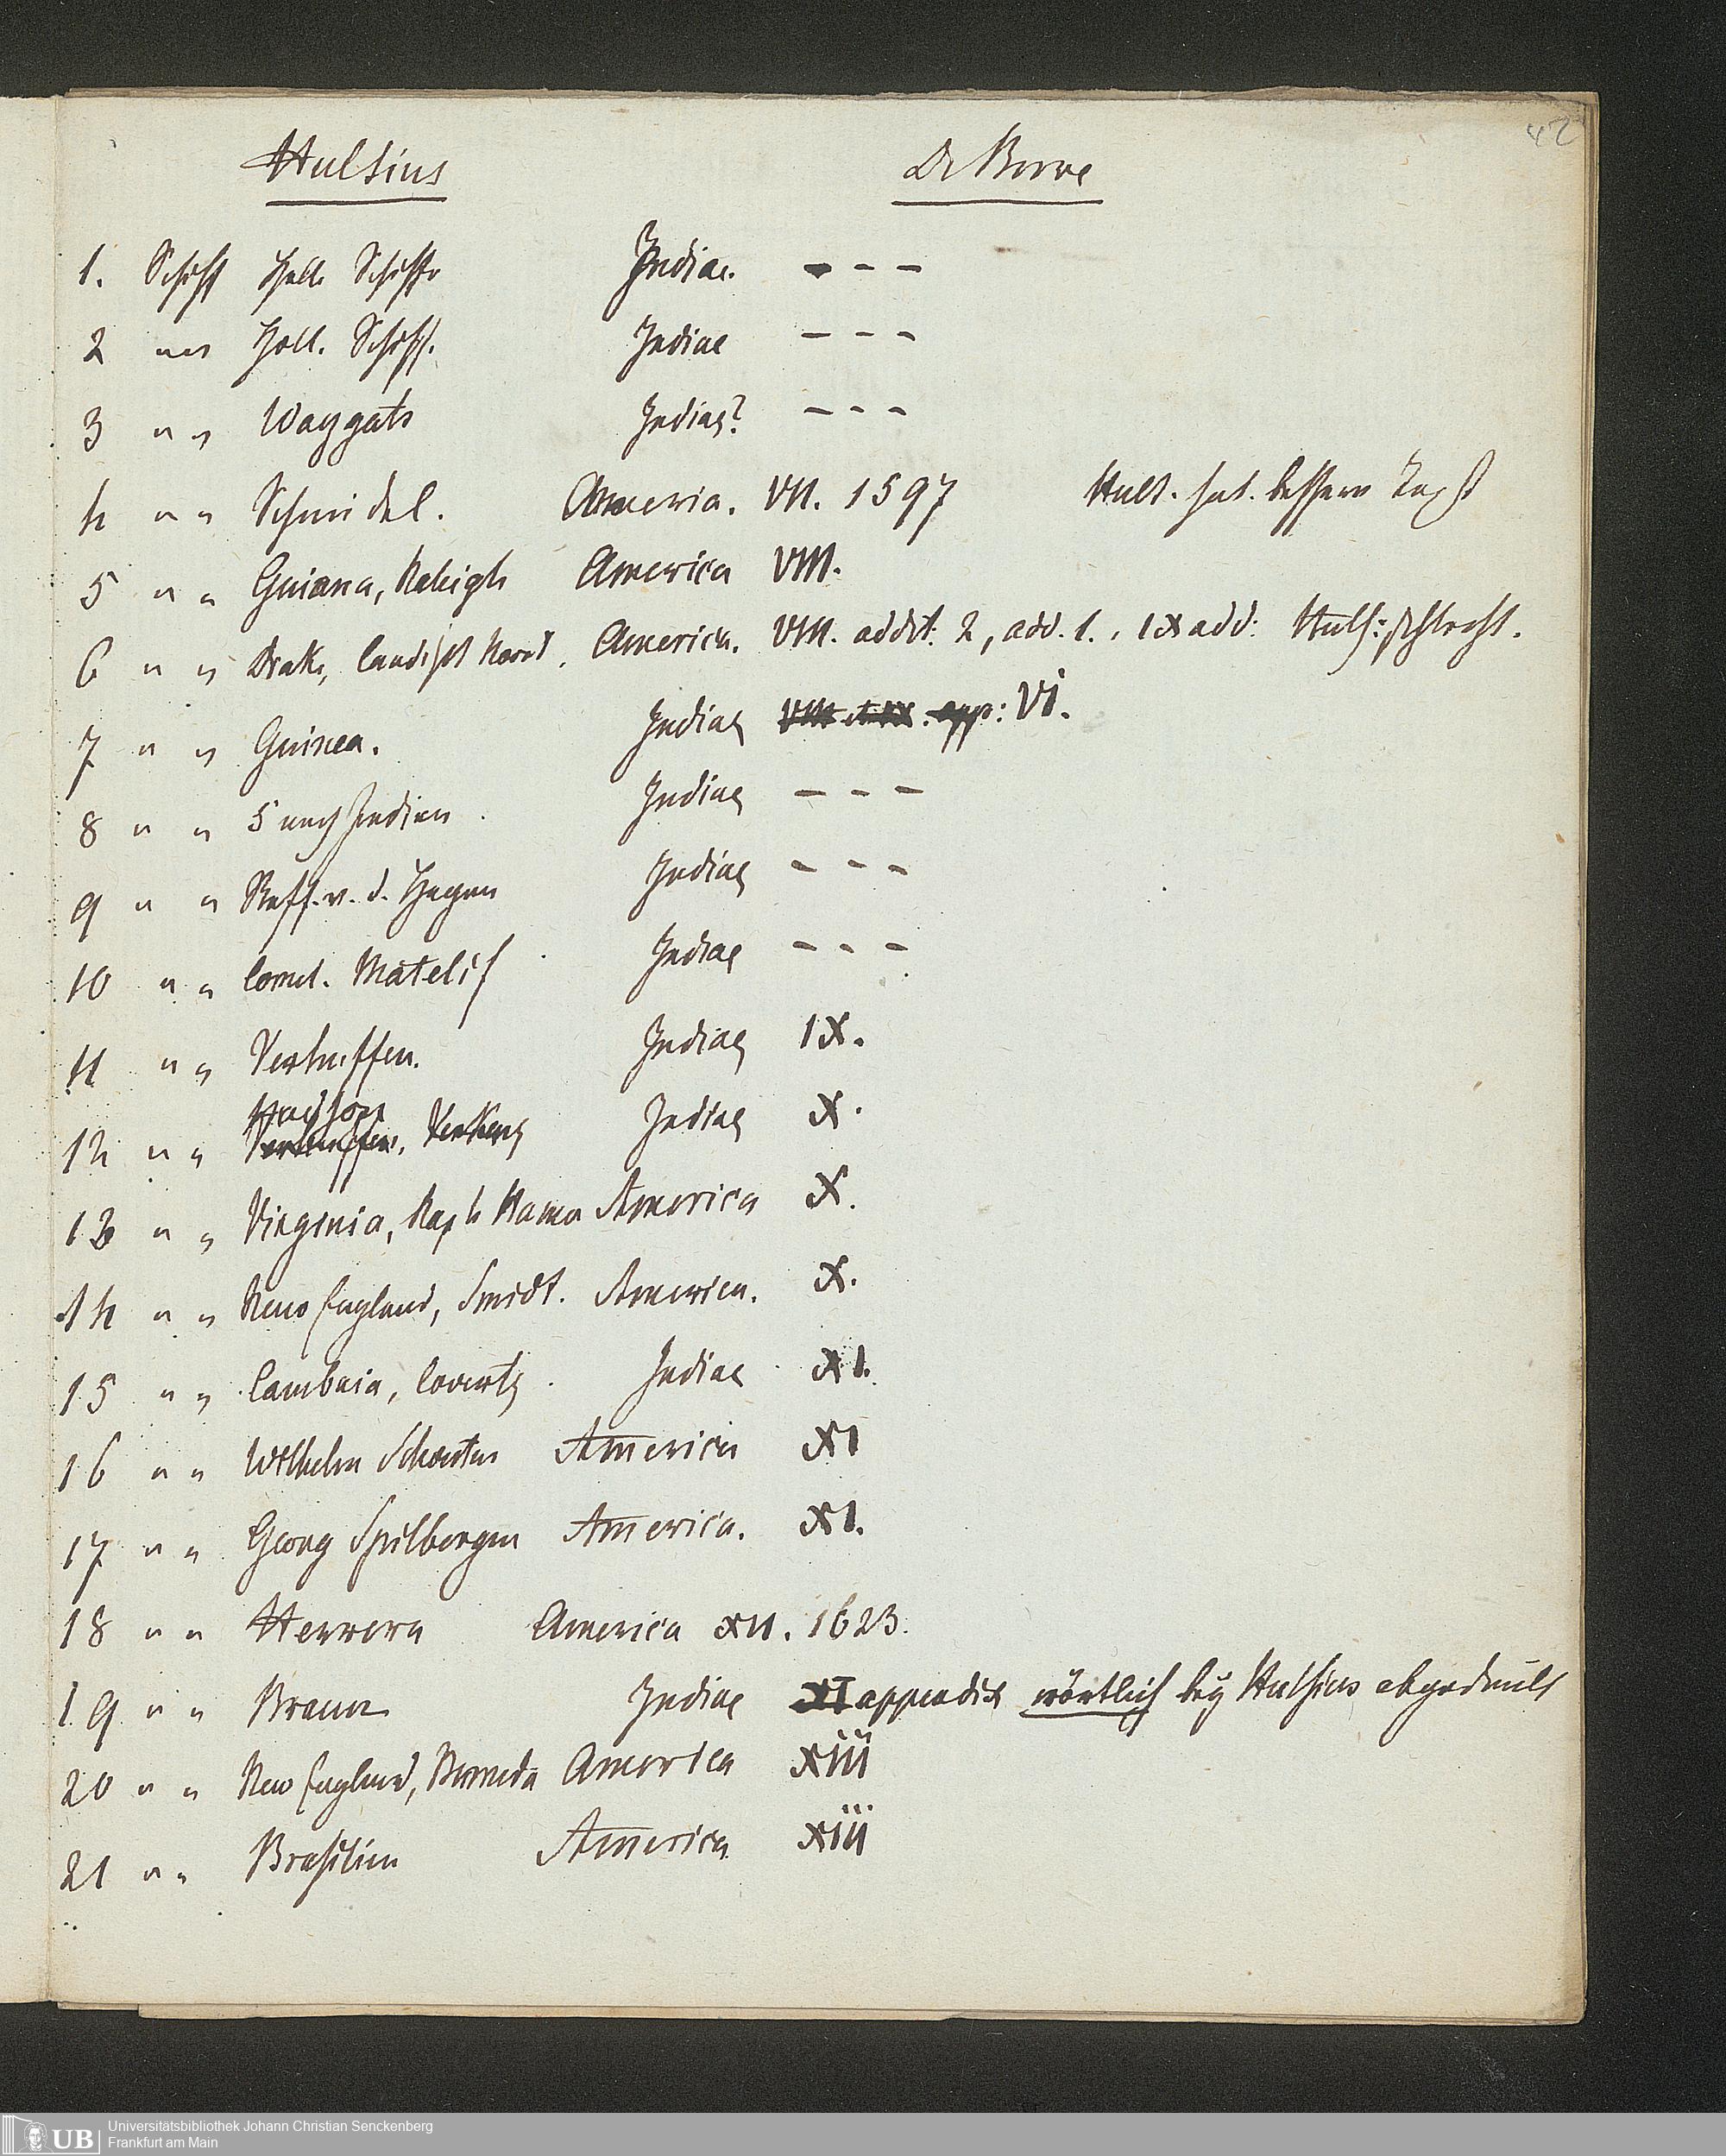 42
Hulsius De Brÿe
1. Schiff Holl. Schiffe Indiae. - - -
2 " " Holl. Schiff. Indiae - - -
3 " " Waygats Indiae? - - -
4 " " Schmidel. America. VII. 1597 Huls. hat bessern Text
5 " " Guiana, Raleigh America VIII.
6 " " Drake, Candisch America. VIII. addit: 2, add. 1. IX add: Hulsius: schlecht.
7 " " Guinea. Indiae app: VI.
8 " " 5 nach Indien. Indiae - - -
9 " " Steff. v. d. Hagen Indiae - - -
10 " " Cornel. Matelif Indiae - - -
11 " " Verhuffen. Indiae IX.
12 " " Hudson Indiae X.
13 " " Virginia, Raph Hamor America X.
14 " " Neuw England, Smidt. America. X.
15 " " Cambaia, Coverts. Indiae XI.
16 " " Wilhelm Schouten America XI
17 " " Georg Spilbergen America. XI.
18 " " Herrera America XII. 1623.
19 " " Braun Indiae XI appendix wörtlich beÿ Hulsius abgedruckt
20 " " New England, Bermuda America XIII
21 " " Brasilien America XIII
UB Universitätsbibliothek Johann Christian Senckenberg
Frankfurt am Main